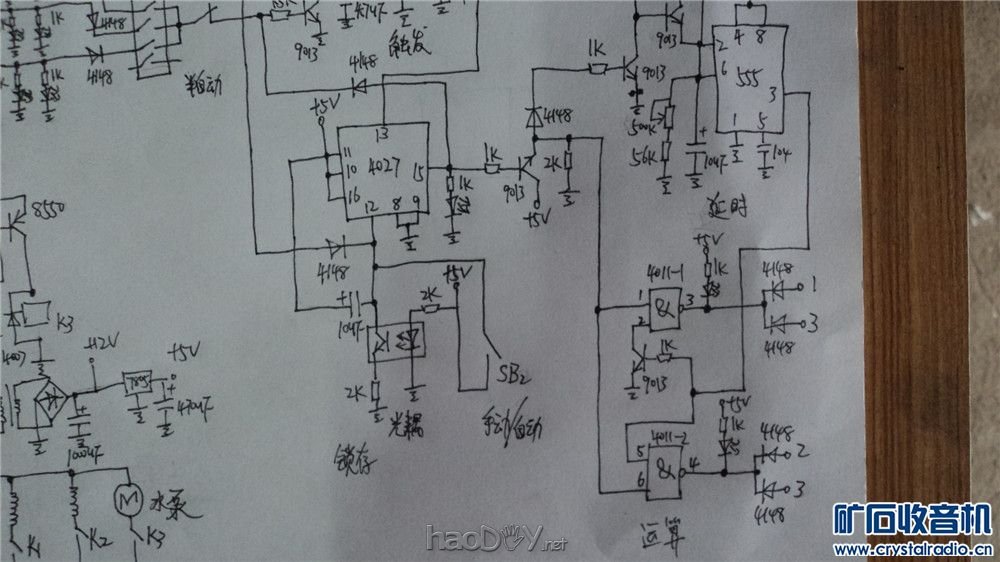 1K
4148
1K
4148
半自动
9013
47uF
触发
4148
+5V
13
11
10
16
4027
15
12
8
9
1K
1K
9013
+5V
2K
4148
1K
9013
9013
500K
56K
+
10uF
4
8
2
6
555
3
1
5
104
延时
8550
K3
4007
+12V
7805
+5V
+
470uF
+
1000uF
M
水泵
K1
K2
K3
4148
10uF
2K
光耦
锁存
2K
+5V
SB2
手动/自动
+5V
1K
4011-1
1
2
&
3
4148
1
3
4148
1K
9013
+5V
1K
4011-2
5
6
&
4
4148
2
3
4148
运算
haoDIY.net
矿石收音机
www.crystalradio.cn